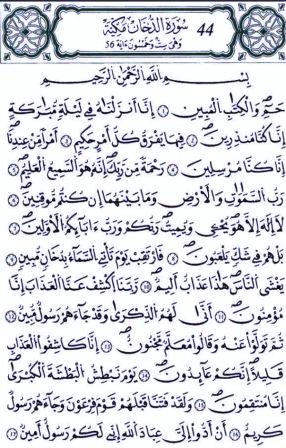 44 سُورَةُ الدُّخَانِ مَكِّيَّةٌ
وَهِيَ سِتٌّ وَخَمْسُونَ ءَايَةً 56
بِسْمِ اللَّهِ الرَّحْمَٰنِ الرَّحِيمِ
حَمِٓ وَالْكِتَٰبِ الْمُبِينِ ١ إِنَّا أَنزَلْنَٰهُ فِي لَيْلَةٍ مُّبَٰرَكَةٍ
إِنَّا كُنَّا مُنذِرِينَ ٢ فِيهَا يُفْرَقُ كُلُّ أَمْرٍ حَكِيمٍ ٣ أَمْرًا مِّنْ عِندِنَا
إِنَّا كُنَّا مُرْسِلِينَ ٤ رَحْمَةً مِّن رَّبِّكَ إِنَّهُ هُوَ السَّمِيعُ الْعَلِيمُ ٥
رَبُّ السَّمَٰوَٰتِ وَالْأَرْضِ وَمَا بَيْنَهُمَا إِن كُنتُم مُّوقِنِينَ ٦
لَا إِلَٰهَ إِلَّا هُوَ يُحْيِي وَيُمِيتُ رَبُّكُمْ وَرَبُّ ءَابَآئِكُمُ الْأَوَّلِينَ ٧
بَلْ هُمْ فِي شَكٍّ يَلْعَبُونَ ٨ فَارْتَقِبْ يَوْمَ تَأْتِي السَّمَآءُ بِدُخَانٍ مُّبِينٍ ٩
يَغْشَى النَّاسَ هَٰذَا عَذَابٌ أَلِيمٌ ١٠ رَّبَّنَا اكْشِفْ عَنَّا الْعَذَابَ إِنَّا
مُؤْمِنُونَ ١١ أَنَّىٰ لَهُمُ الذِّكْرَىٰ وَقَدْ جَآءَهُمْ رَسُولٌ مُّبِينٌ ١٢
ثُمَّ تَوَلَّوْا عَنْهُ وَقَالُوا مُعَلَّمٌ مَّجْنُونٌ ١٣ إِنَّا كَاشِفُوا الْعَذَابِ
قَلِيلًا إِنَّكُمْ عَآئِدُونَ ١٤ يَوْمَ نَبْطِشُ الْبَطْشَةَ الْكُبْرَىٰ
إِنَّا مُنتَقِمُونَ ١٥ وَلَقَدْ فَتَنَّا قَبْلَهُمْ قَوْمَ فِرْعَوْنَ وَجَآءَهُمْ رَسُولٌ
كَرِيمٌ ١٦ أَنْ أَدُّوا إِلَيَّ عِبَادَ اللَّهِ إِنِّي لَكُمْ رَسُولٌ أَمِينٌ ١٧